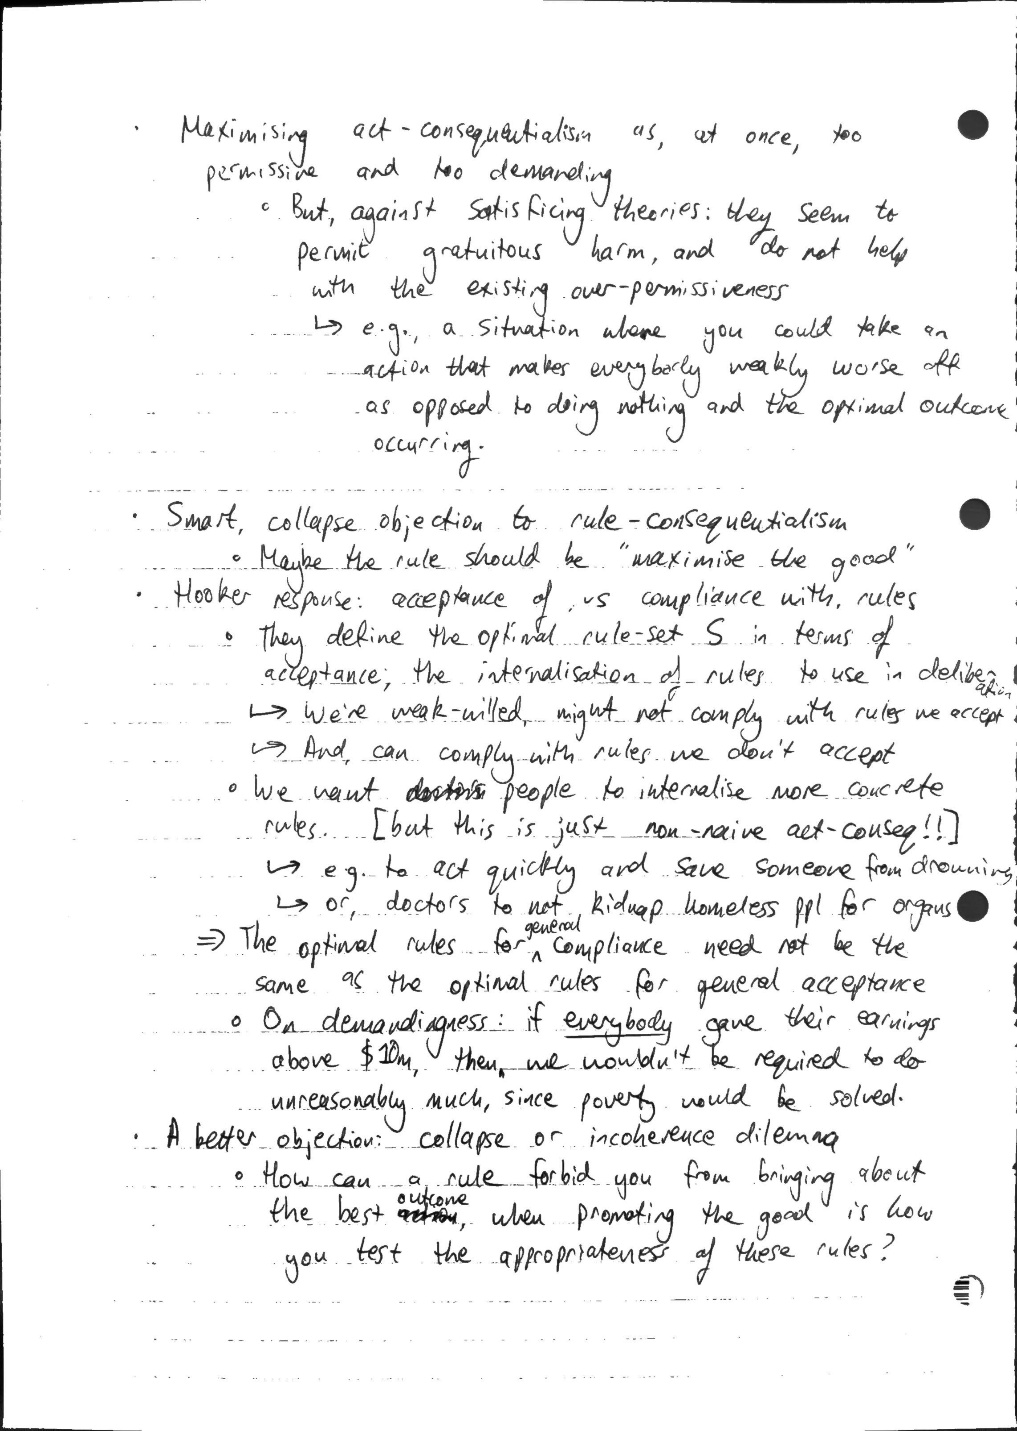 · Maximising act-consequentialism as, at once, too
permissive and too demanding
∘ But, against satisficing theories: they seem to
permit gratuitous harm, and do not help
with the existing over-permissiveness
↳ e.g., a situation where you could take an
action that makes everybody weakly worse off
as opposed to doing nothing and the optimal outcome
occurring.
· Smart, collapse objection to rule-consequentialism
∘ Maybe the rule should be "maximise the good"
· Hooker response: acceptance of, vs compliance with, rules
∘ They define the optimal rule-set S in terms of
acceptance; the internalisation of rules to use in deliber-
ation
↳ We're weak-willed, might not comply with rules we accept
↳ And, can comply with rules we don't accept
∘ We want people to internalise more concrete
rules. [but this is just non-naive act-conseq!!]
↳ e.g. to act quickly and save someone from drowning
↳ or, doctors to not kidnap homeless ppl for organs
⇒ The optimal rules for general compliance need not be the
same as the optimal rules for general acceptance
∘ On demandingness: if everybody gave their earnings
above $10m, then, we wouldn't be required to do
unreasonably much, since poverty would be solved.
· A better objection: collapse or incoherence dilemma
∘ How can a rule forbid you from bringing about
the best outcome, when promoting the good is how
you test the appropriateness of these rules?